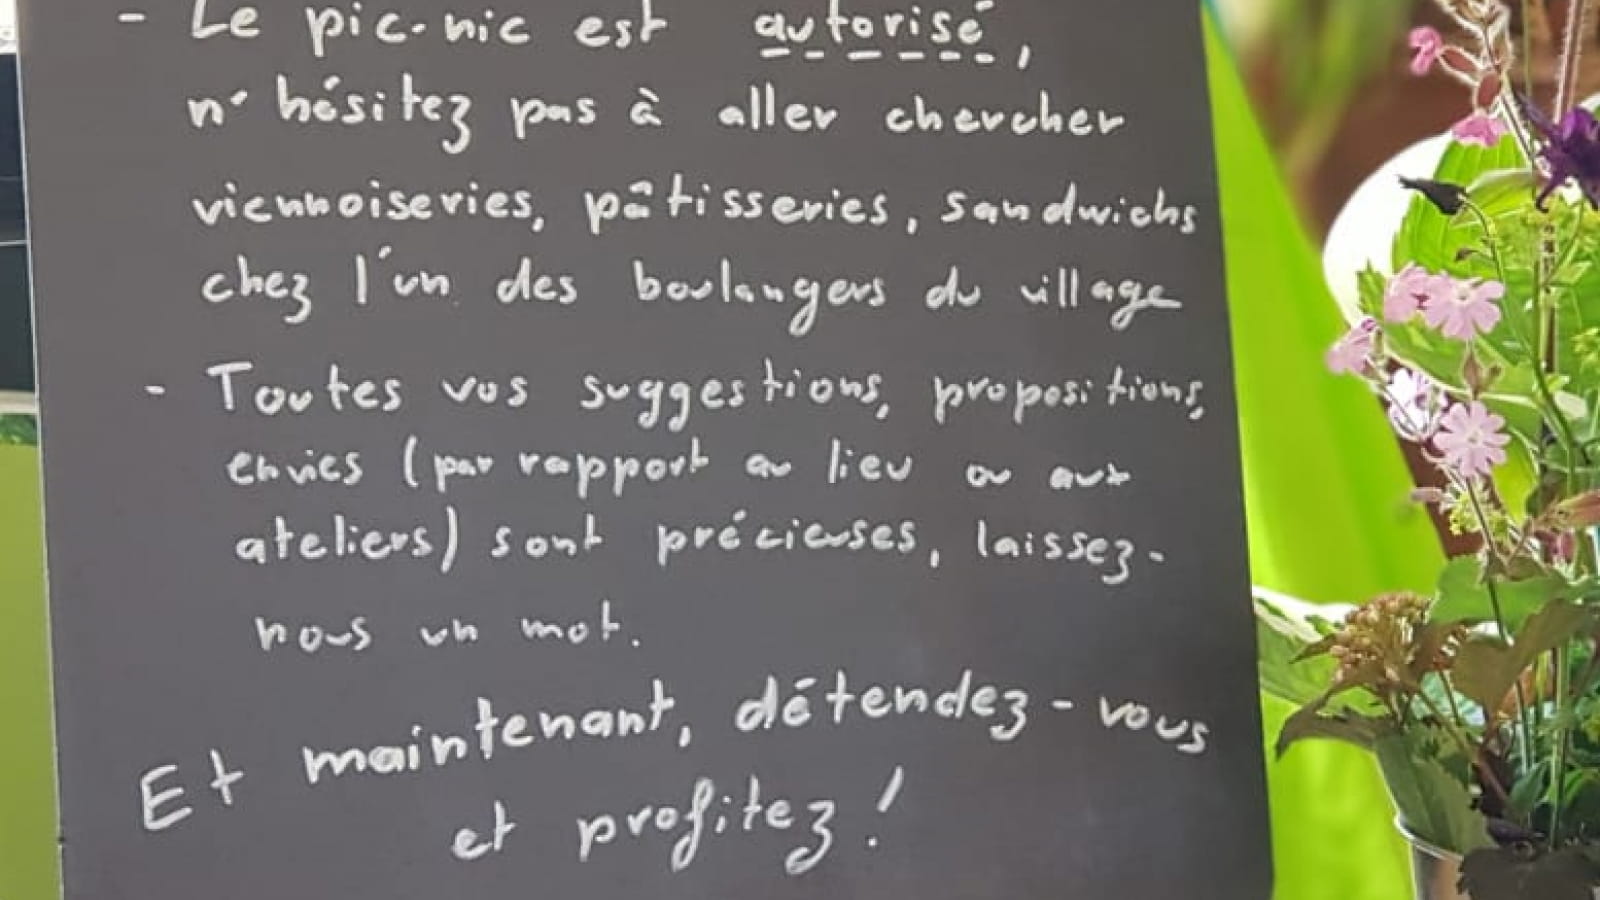 - Le pic-nic est autorisé,
n'hésitez pas à aller chercher
viennoiseries, pâtisseries, sandwichs
chez l'un des boulangers du village
- Toutes vos suggestions, propositions,
envies (par rapport au lieu ou aux
ateliers) sont précieuses, laissez-
nous un mot.
Et maintenant, détendez-vous
et profitez !